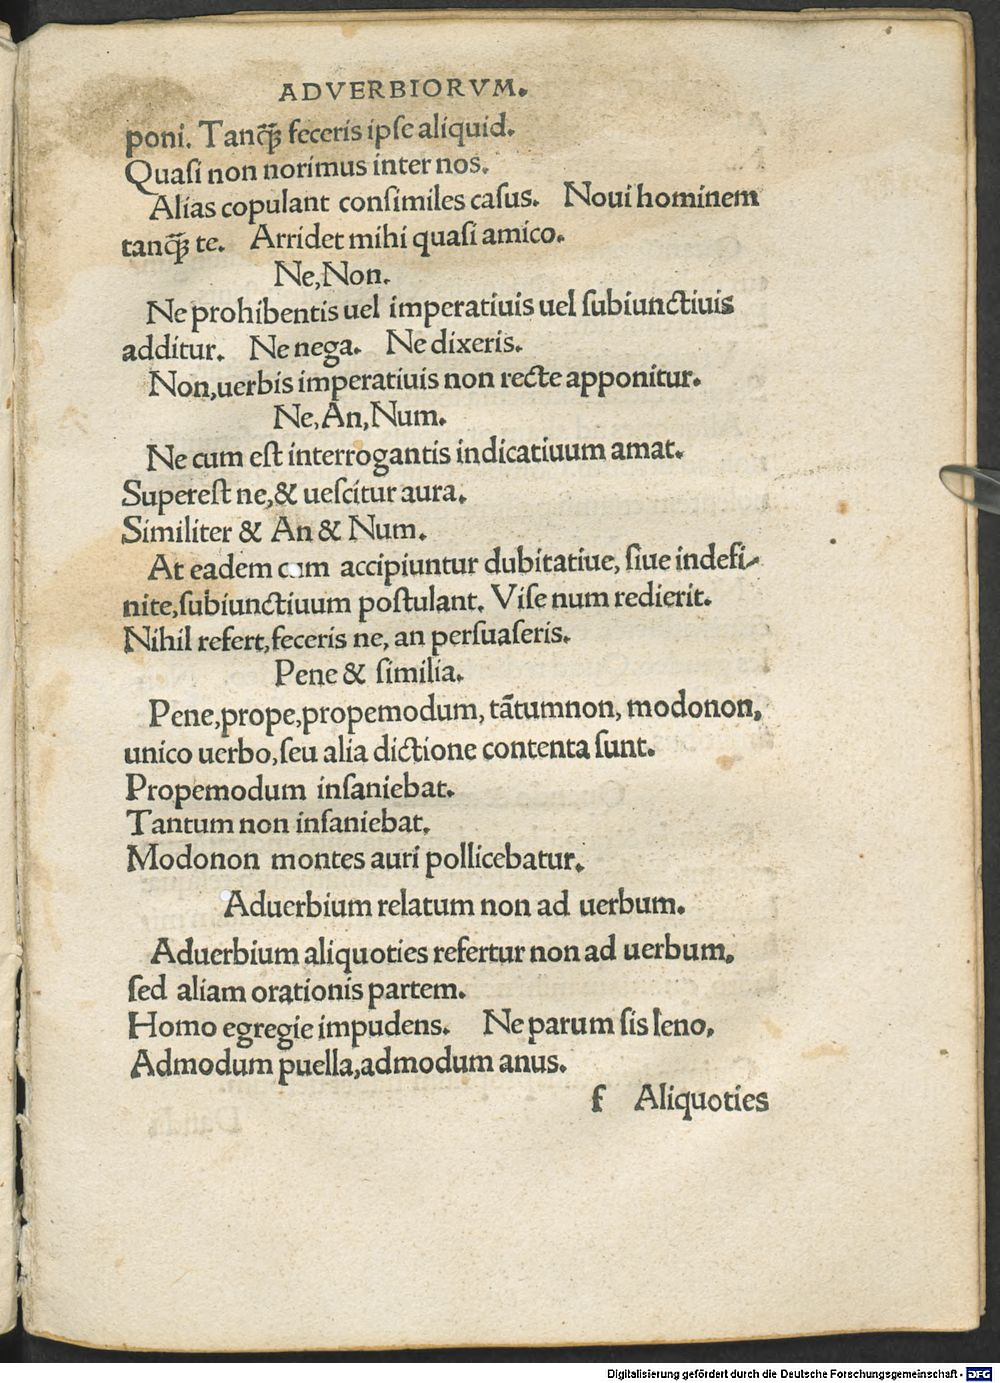 ADVERBIORVM.
poni. Tanꝙ̃ feceris ipſe aliquid.
Quaſi non norimus inter nos.
Alias copulant conſimiles caſus. Noui hominem
tanꝙ̃ te. Arridet mihi quaſi amico.
Ne, Non.
Ne prohibentis uel imperatiuis uel ſubiunctiuis
additur. Ne nega. Ne dixeris.
Non, uerbis imperatiuis non recte apponitur.
Ne, An, Num.
Ne cum eſt interrogantis indicatiuum amat.
Supereſt ne, & ueſcitur aura.
Similiter & An & Num.
At eadem cum accipiuntur dubitatiue, ſiue indefi-
nite, ſubiunctiuum poſtulant. Viſe num redierit.
Nihil refert, feceris ne, an perſuaſeris.
Pene & ſimilia.
Pene, prope, propemodum, tãtumnon, modonon,
unico uerbo, ſeu alia dictione contenta ſunt.
Propemodum inſaniebat.
Tantum non inſaniebat.
Modonon montes auri pollicebatur.
Aduerbium relatum non ad uerbum.
Aduerbium aliquoties refertur non ad uerbum,
ſed aliam orationis partem.
Homo egregie impudens. Ne parum ſis leno,
Admodum puella, admodum anus.
f Aliquoties
Digitalisierung gefördert durch die Deutsche Forschungsgemeinschaft - DFG